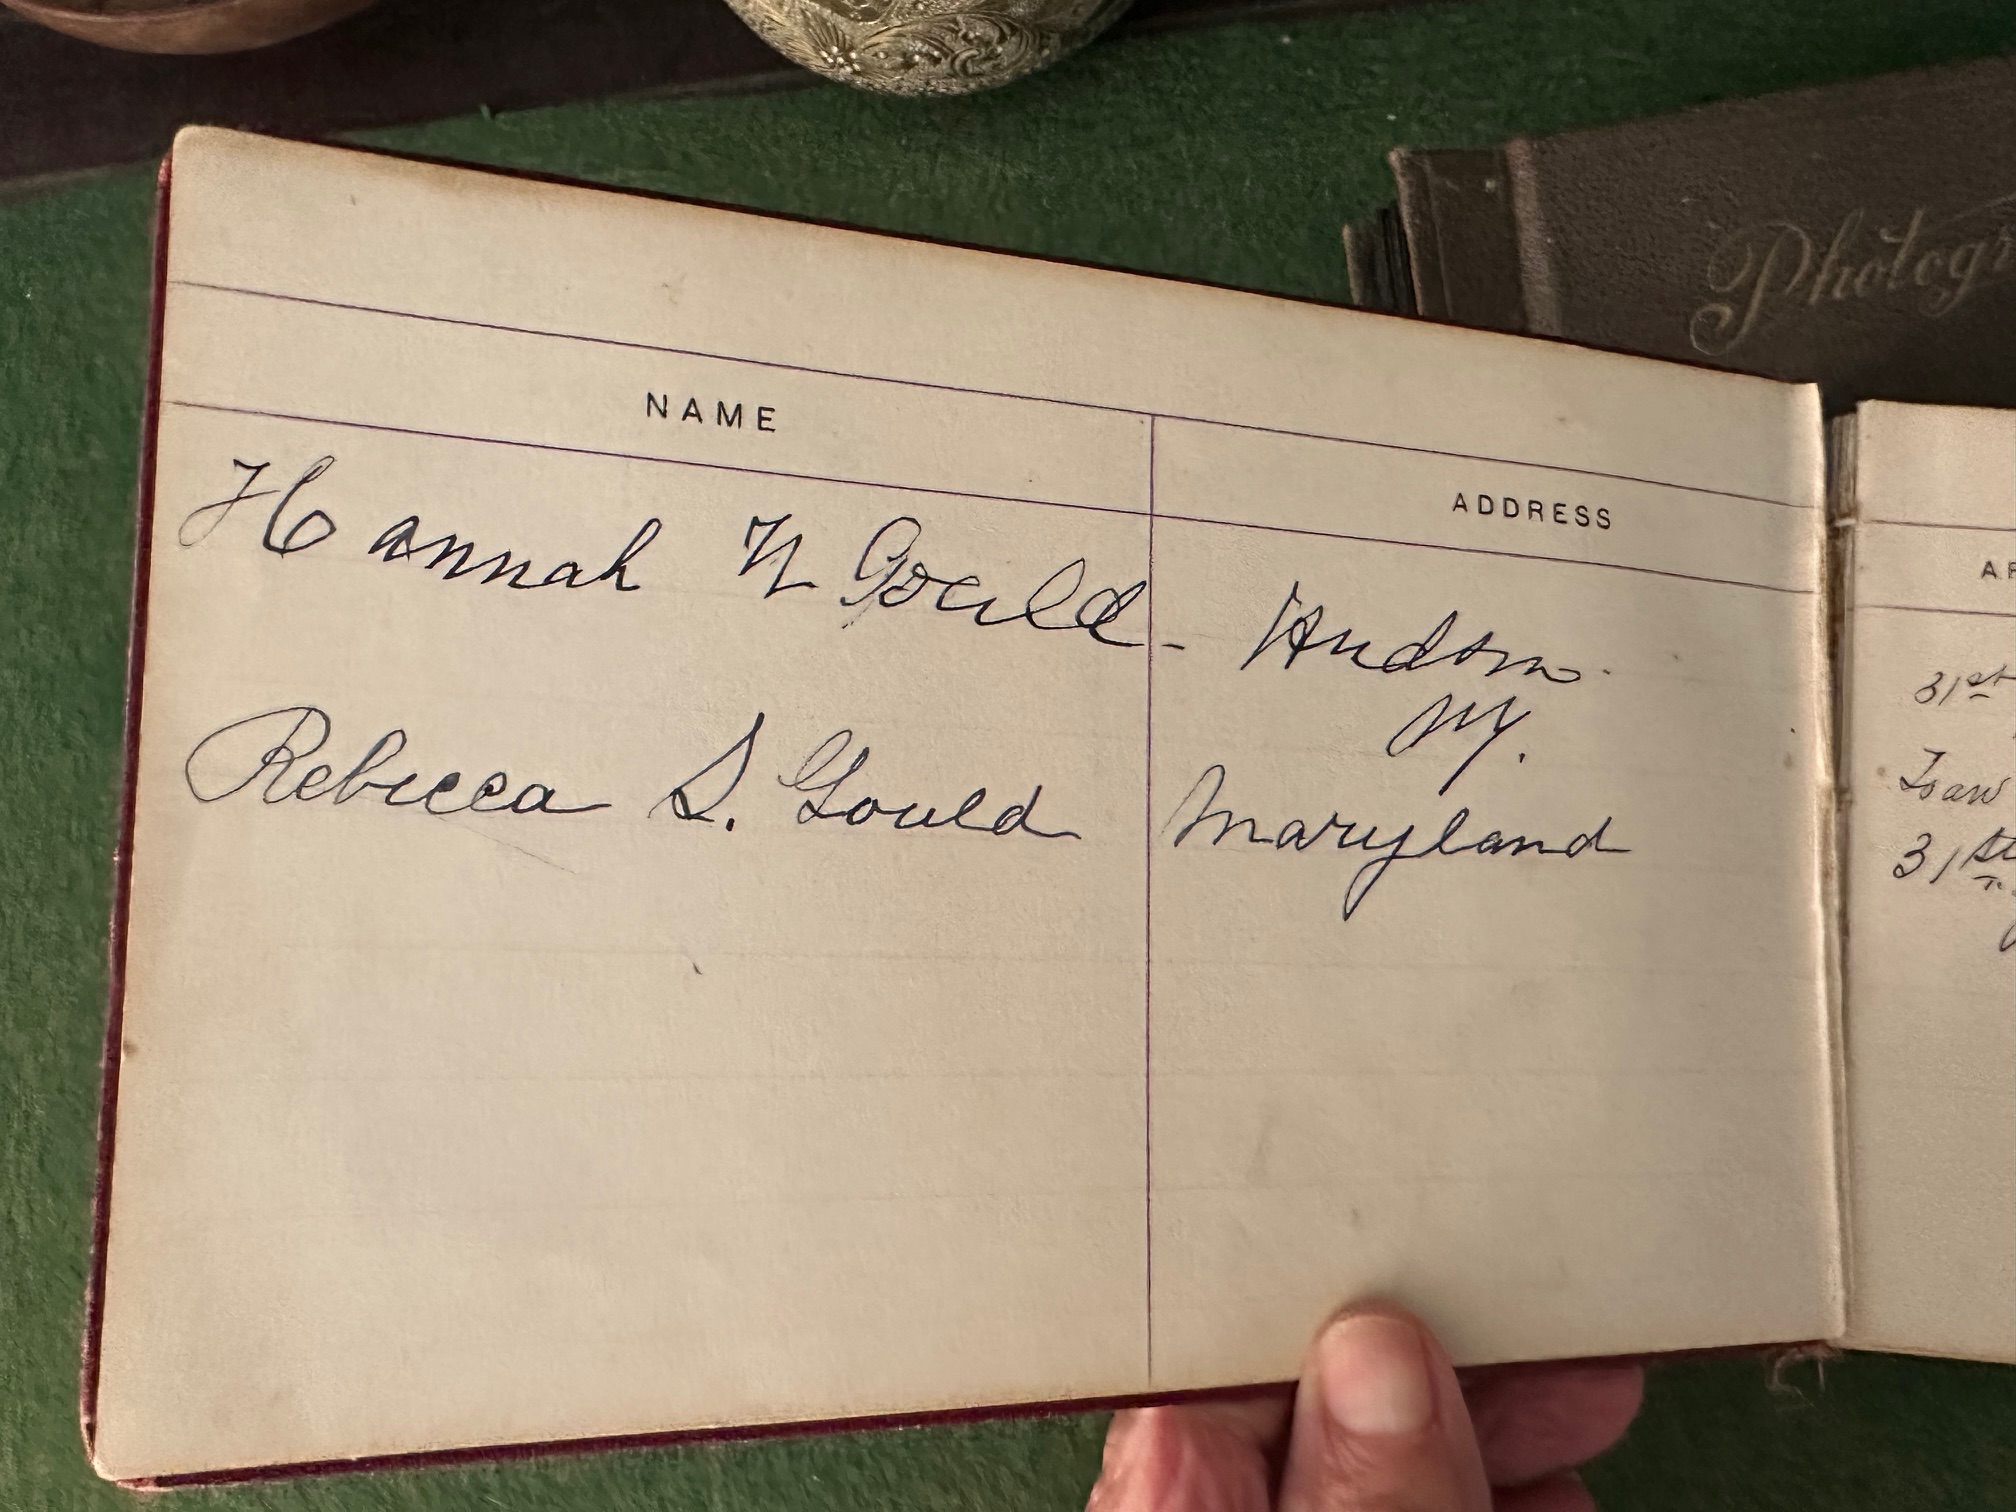 Photogr
NAME ADDRESS
Hannah N Gould - Hudson
NY.
Rebecca S. Gould Maryland
31st
31st